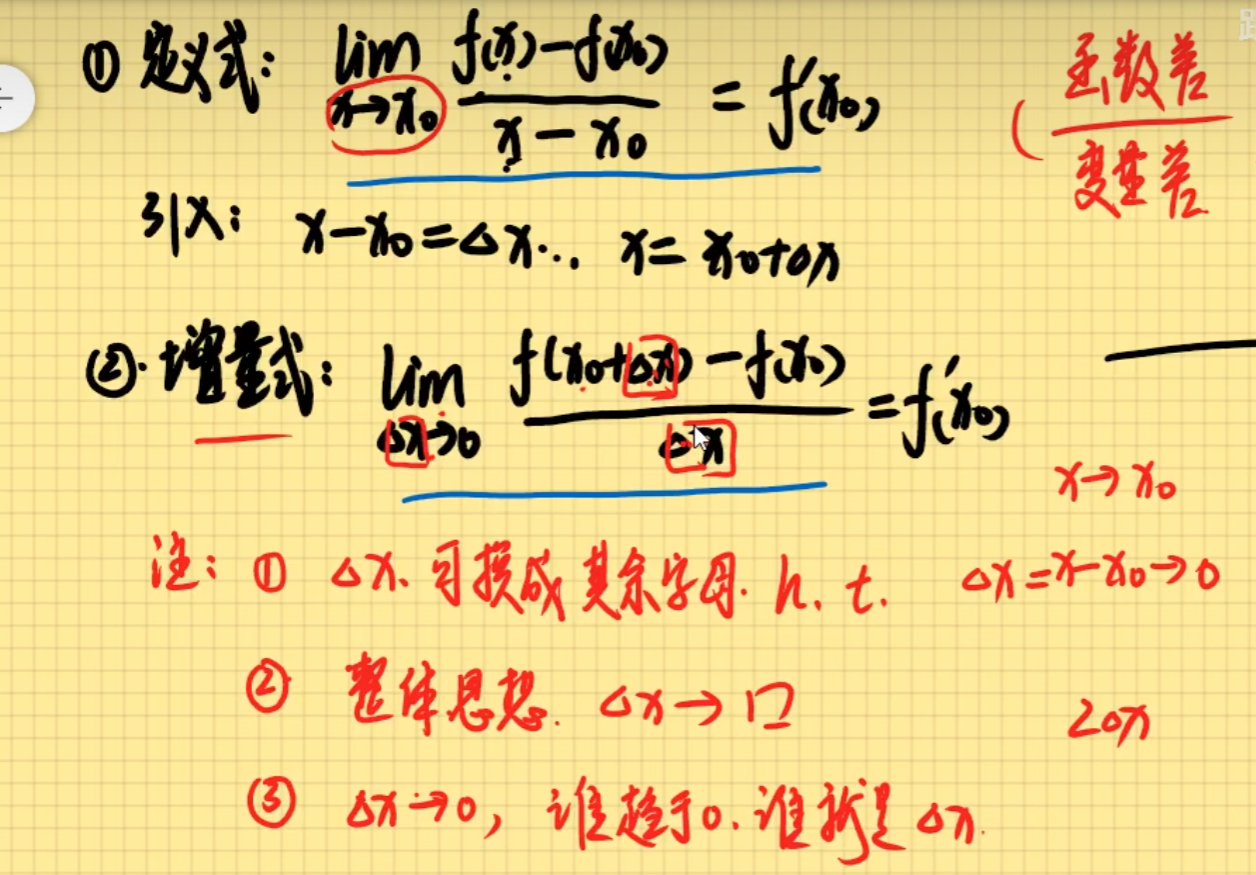 ① 定义式: lim_{x→x₀} (f(x)-f(x₀))/(x-x₀) = f′(x₀)
(函数差/变量差
引入: x-x₀=Δx∴ x=x₀+Δx
②. 增量式: lim_{Δx→0} (f(x₀+Δx)-f(x₀))/Δx = f′(x₀)
x→x₀
注: ① Δx、可换成其余字母. h. t.
Δx=x-x₀→0
② 整体思想. Δx→口
2Δx
③ Δx→0, 谁趋于0. 谁就是Δx.